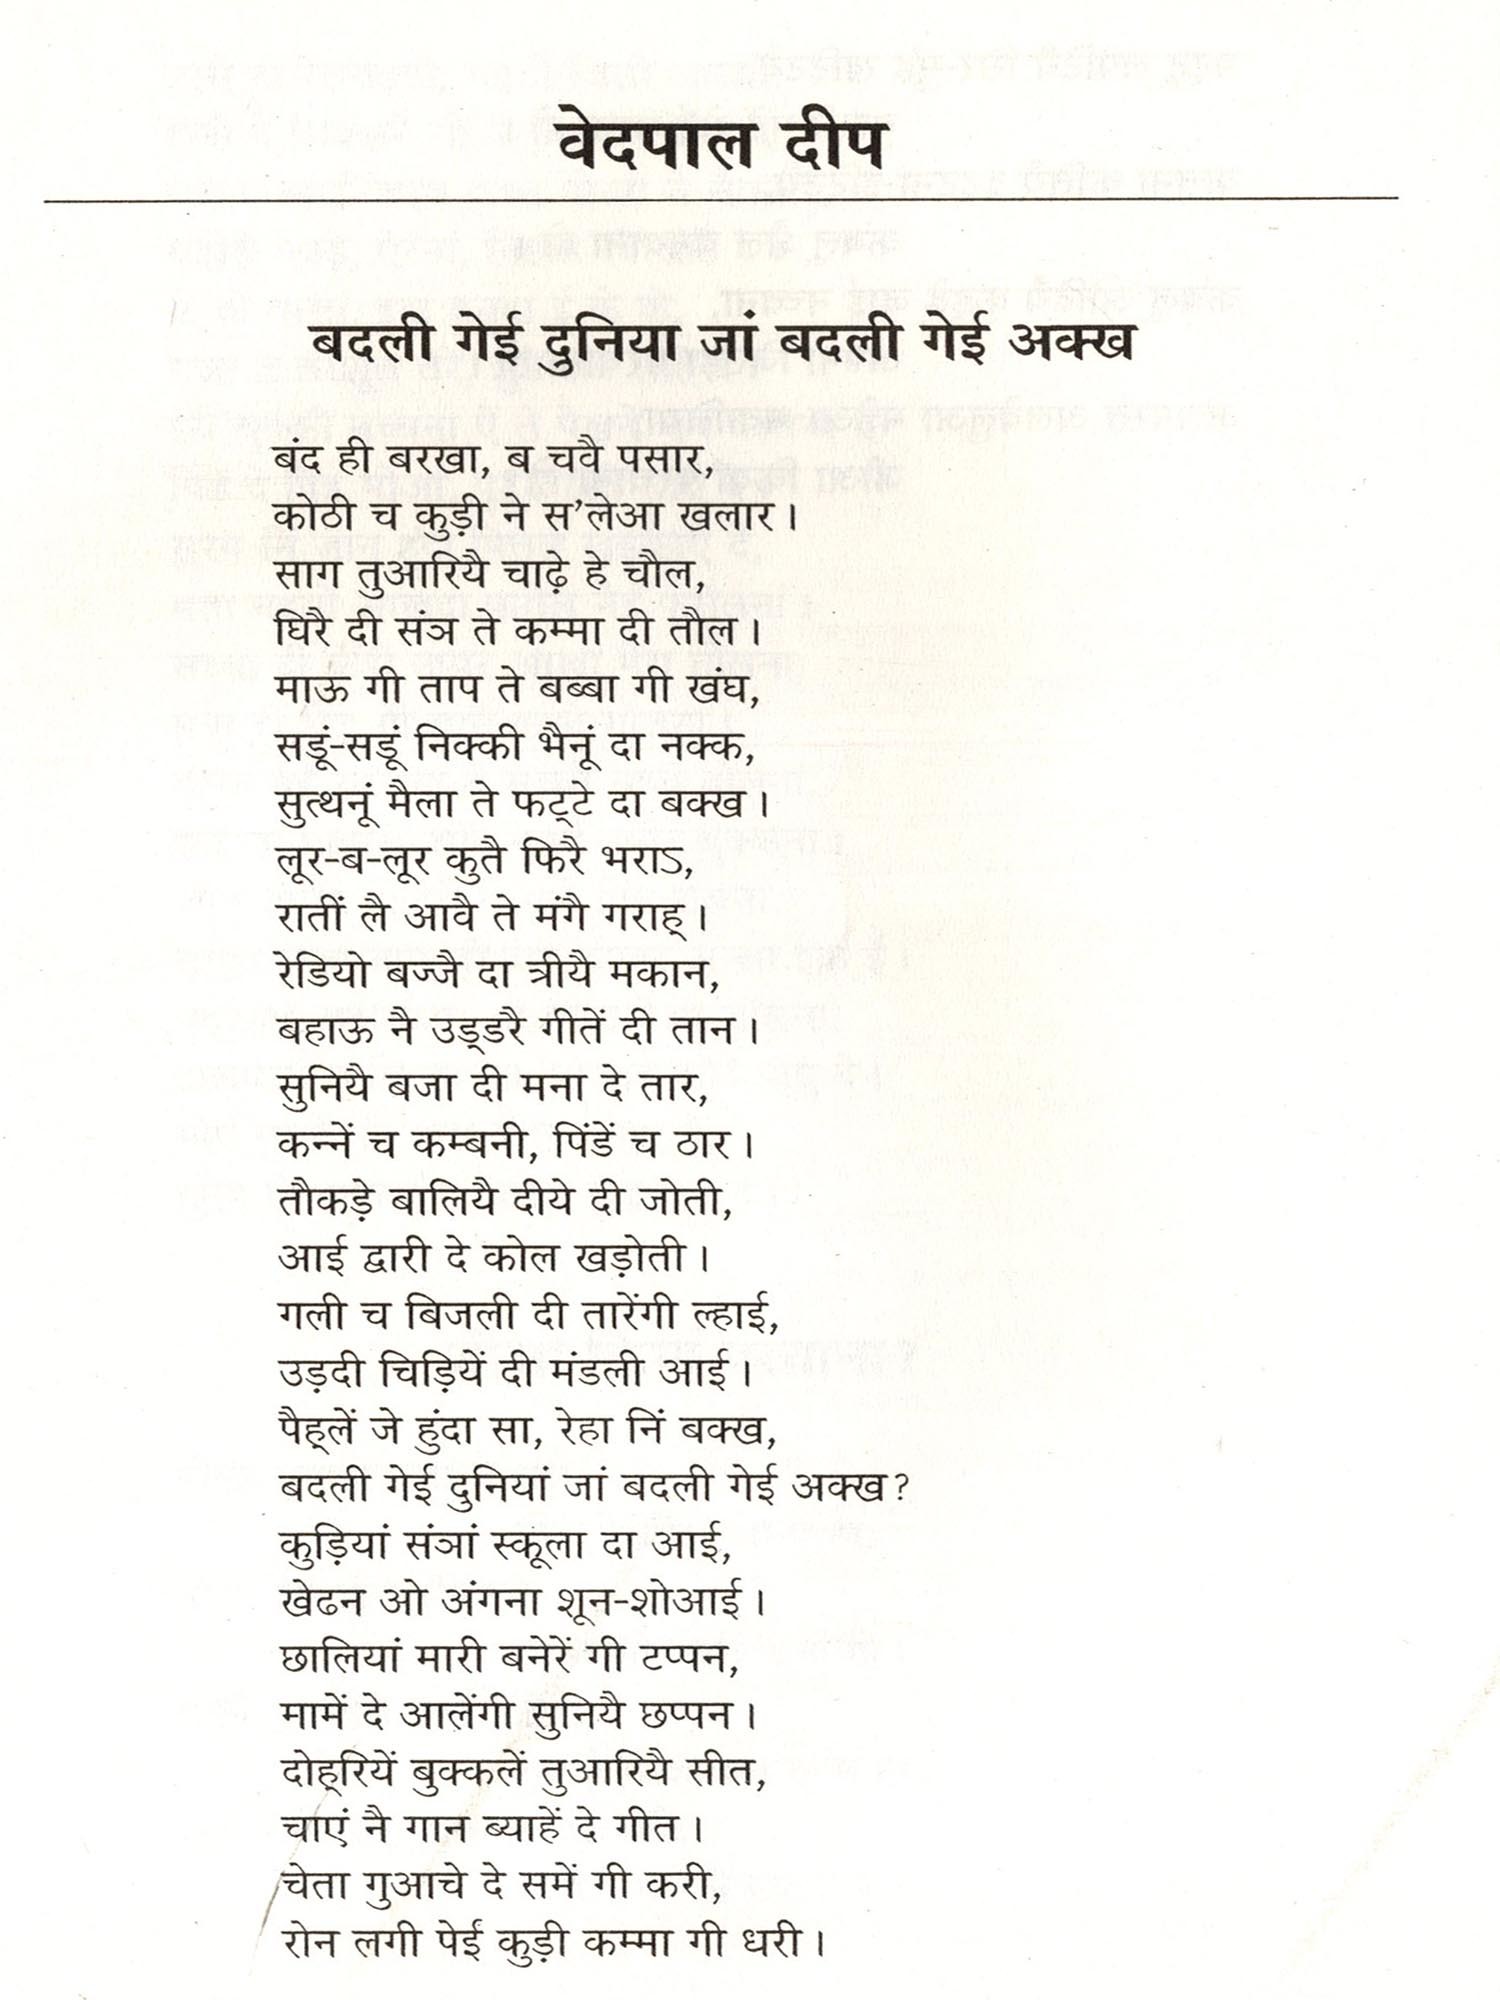 वेदपाल दीप
बदली गेई दुनिया जां बदली गेई अक्ख
बंद ही बरखा, ब चवै पसार,
कोठी च कुड़ी ने स’लेआ खलार।
साग तुआरियै चाढ़े हे चौल,
घिरै दी संञ ते कम्मा दी तौल।
माऊ गी ताप ते बब्बा गी खंघ,
सडूं-सडूं निक्की भैनूं दा नक्क,
सुत्थनूं मैला ते फट्टे दा बक्ख।
लूर-ब-लूर कुतै फिरै भराऽ,
रातीं लै आवै ते मंगै गराह्।
रेडियो बज्जै दा त्रीयै मकान,
बहाऊ नै उड्डरै गीतें दी तान।
सुनियै बजा दी मना दे तार,
कन्नें च कम्बनी, पिंडें च ठार।
तौकड़े बालियै दीये दी जोती,
आई द्वारी दे कोल खड़ोती।
गली च बिजली दी तारेंगी ल्हाई,
उड़दी चिड़ियें दी मंडली आई।
पैह्लें जे हुंदा सा, रेहा निं बक्ख,
बदली गेई दुनियां जां बदली गेई अक्ख?
कुड़ियां संञां स्कूला दा आई,
खेढन ओ अंगना शून-शोआई।
छालियां मारी बनेरें गी टप्पन,
मामें दे आलेंगी सुनियै छप्पन।
दोह्रियें बुक्कलें तुआरियै सीत,
चाएं नै गान ब्याहें दे गीत।
चेता गुआचे दे समें गी करी,
रोन लगी पेईं कुड़ी कम्मा गी धरी।